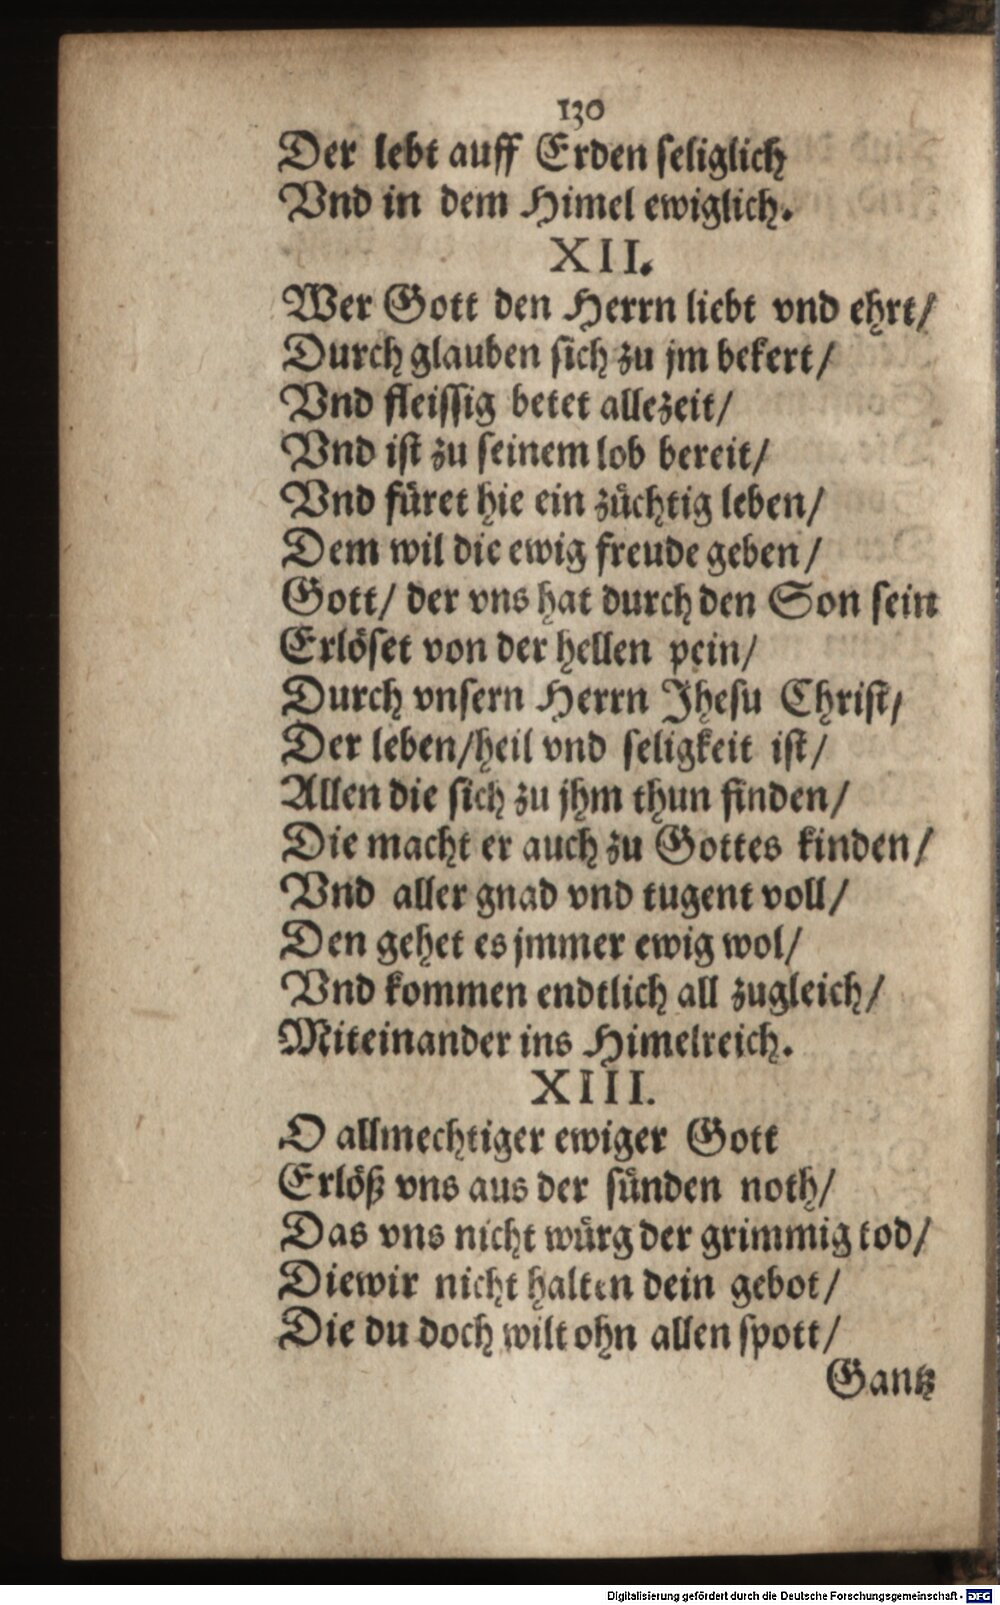 130
Der lebt auff Erden seliglich
Vnd in dem Himel ewiglich.
XII.
Wer Gott den Herrn liebt vnd ehrt/
Durch glauben sich zu jm bekert/
Vnd fleissig betet allezeit/
Vnd ist zu seinem lob bereit/
Vnd füret hie ein züchtig leben/
Dem wil die ewig freude geben/
Gott/ der vns hat durch den Son sein
Erlöset von der hellen pein/
Durch vnsern Herrn Jhesu Christ/
Der leben/heil vnd seligkeit ist/
Allen die sich zu jhm thun finden/
Die macht er auch zu Gottes kinden/
Vnd aller gnad vnd tugent voll/
Den gehet es jmmer ewig wol/
Vnd kommen endtlich all zugleich/
Miteinander ins Himelreich.
XIII.
O allmechtiger ewiger Gott
Erlöß vns aus der sünden noth/
Das vns nicht würg der grimmig tod/
Diewir nicht halten dein gebot/
Die du doch wilt ohn allen spott/
Gantz
Digitalisierung gefördert durch die Deutsche Forschungsgemeinschaft - DFG